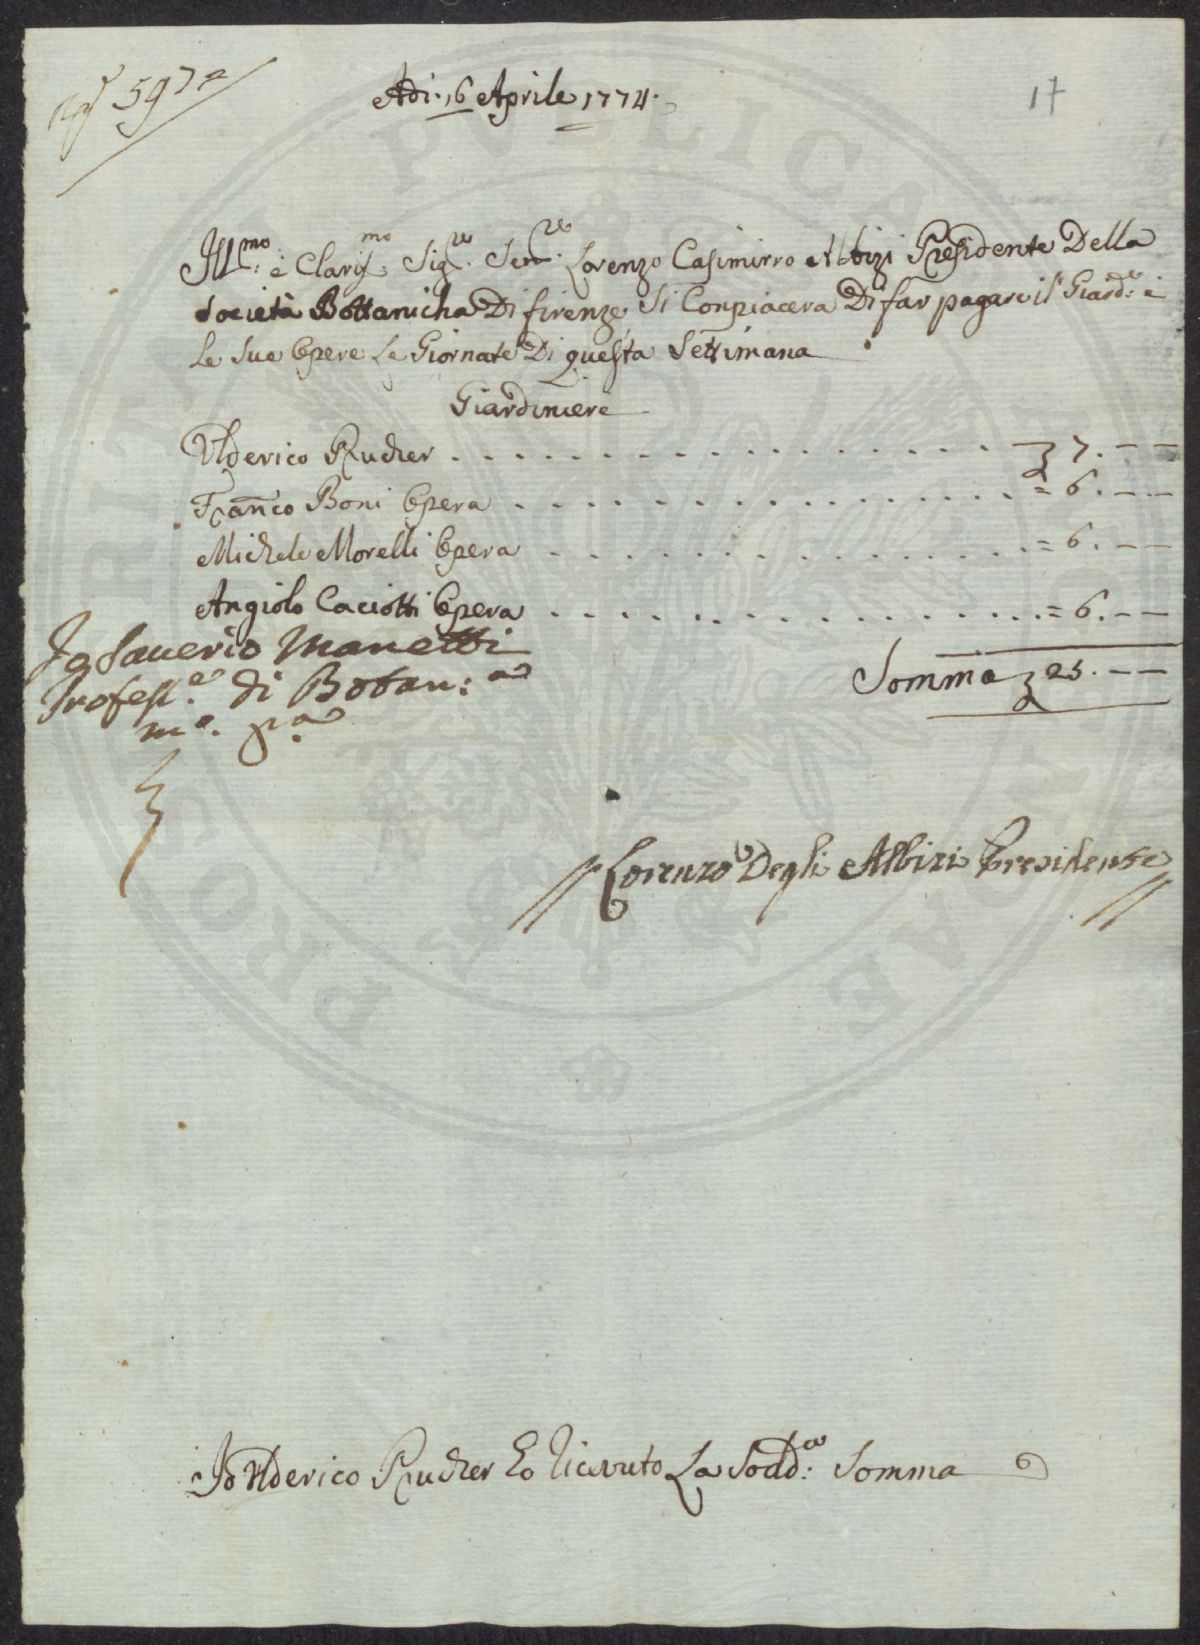 597
17
Adi 16 Aprile 1774.
Ill.mo è Claris.mo Sig.re Sen.re Lorenzo Casimirro Albizi Presidente Della
Società Bottanicha Di firenze Si Conpiacera Di far pagare il Giard.e è
Le Sue Opere Le Giornate Di questa Settimana
Giardiniere
Ulderico Rucher . . . . . . . . . . . . . . . . . 7. — —
Fran̄co Boni Opera . . . . . . . . . . . . . . . = 6. — —
Michele Morelli Opera . . . . . . . . . . . . . = 6. — —
Angiolo Caciotti Opera . . . . . . . . . . . . . = 6. — —
Somma 25. — —
Io Saverio Manetti
Profess.e di Botan:a
m.o p.a
Lorenzo Degli Albizi Presidente
Io Ulderico Rucher ho Ricevuto La Sodd:a Somma
PROSPERITATI PUBLICAE